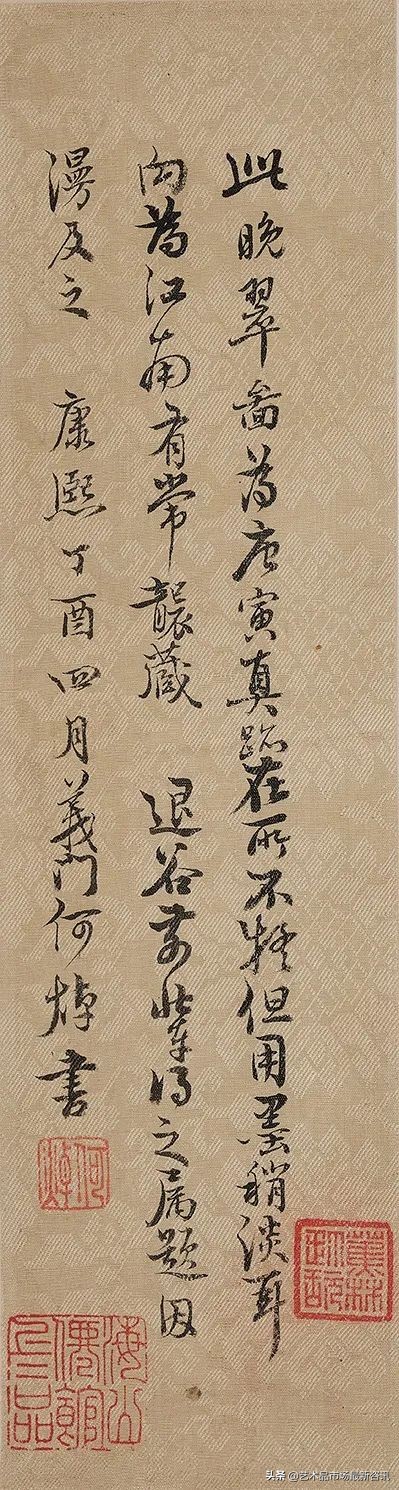 此晚翠圖為唐寅真跡在所不疑但用墨稍淡耳
向為江南有常襲藏 退谷前輩得之属題因
漫及之 康熙丁酉四月義門何焯書
何焯
海山僊館
头条 @艺术品市场最新咨讯